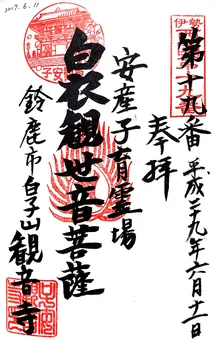 2017.6.11
第十九番
奉拝
平成二十九年六月十一日
安産子育霊場
白衣観世音菩薩
鈴鹿市白子山観音寺